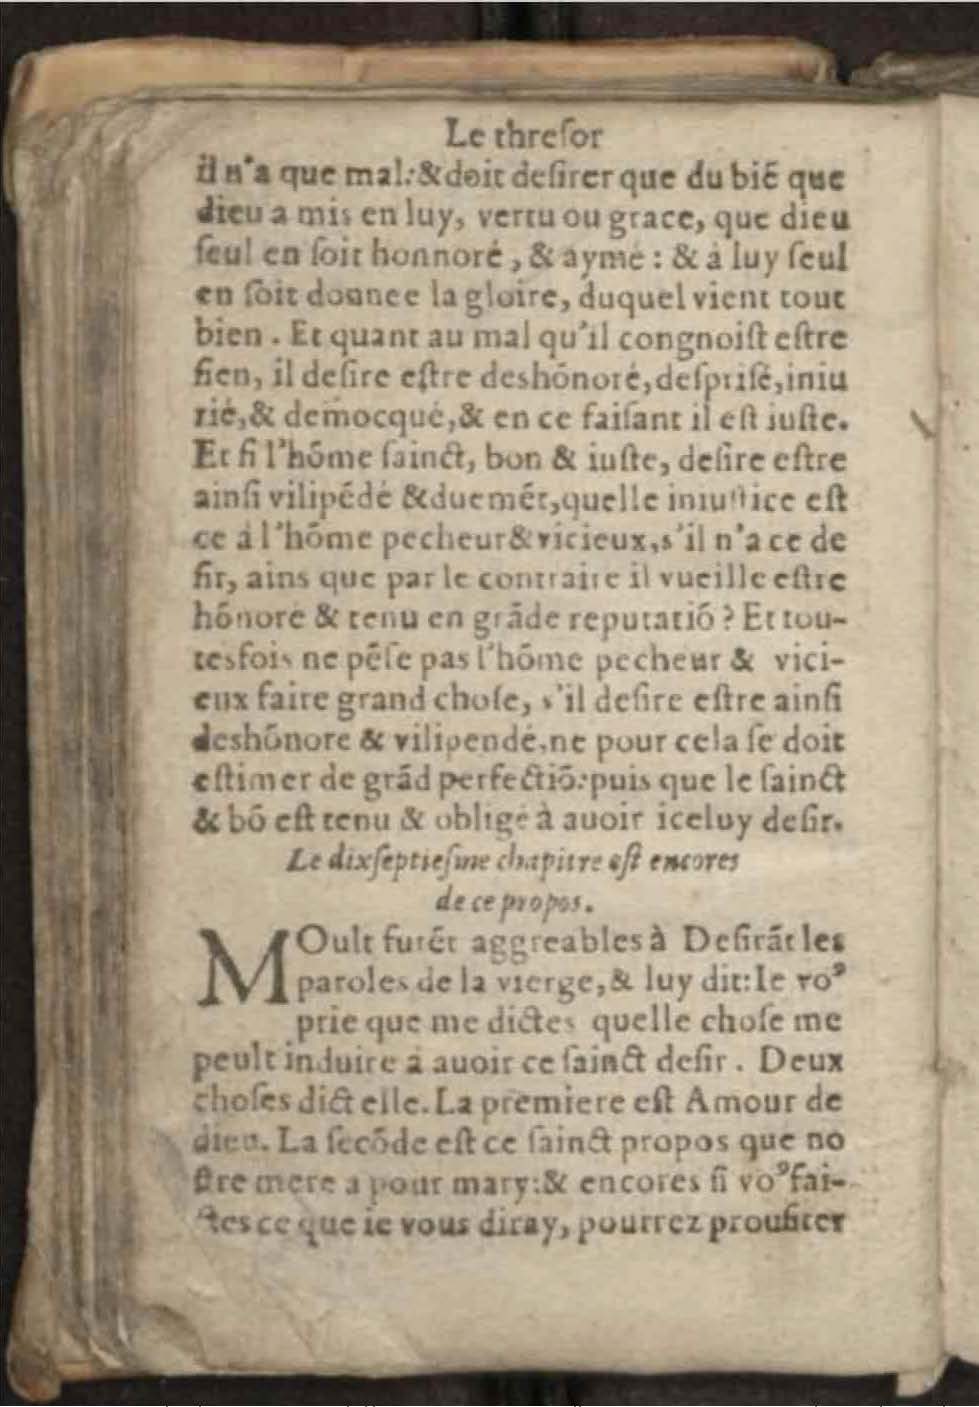 Le threſor
il n'a que mal:&doit deſirer que du biẽ que
dieu a mis en luy, vertu ou grace, que dieu
ſeul en ſoit honnoré, & aymé : & à luy ſeul
en ſoit donnee la gloire, duquel vient tout
bien . Et quant au mal qu'il congnoiſt eſtre
ſien, il deſire eſtre deshõnoré,deſpriſé,iniu
rié,& democqué,& en ce faiſant il eſt iuſte.
Et ſi l'hõme ſainct, bon & iuſte, deſire eſtre
ainſi vilipẽdé &duemẽt,quelle iniuſtice eſt
ce à l'hõme pecheur&vicieux,s'il n'a ce de
ſir, ains que par le contraire il vueille eſtre
hõnoré & tenu en grãde reputatiõ? Et tou-
tesfois ne pẽſe pas l'hõme pecheur & vici-
eux faire grand choſe, s'il deſire eſtre ainſi
deshõnoré & vilipendé,ne pour cela ſe doit
eſtimer de grãd perfectiõ:puis que le ſainct
& bõ eſt tenu & obligé à auoir iceluy deſir.
Le dixſeptieſme chapitre eſt encores
de ce propos.
MOult furẽt aggreables à Deſirãt les
paroles de la vierge,& luy dit:Ie voꝰ
prie que me dictes quelle choſe me
peult induire à auoir ce ſainct deſir . Deux
choſes dict elle. La premiere eſt Amour de
dieu. La ſecõde eſt ce ſainct propos que no
ſtre mere a pour mary:& encores ſi voꝰ fai-
ctes ce que ie vous diray, pourrez proufiter